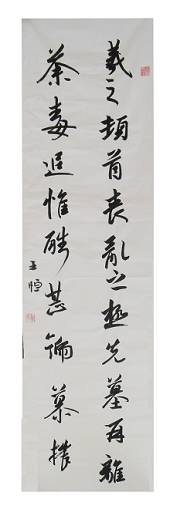 羲之頓首喪亂之極先墓再離
荼毒追惟酷甚號慕摧
王恒